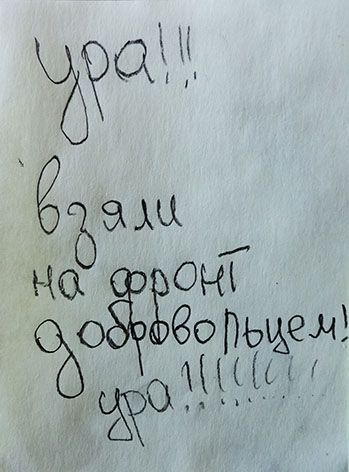 ура!!!
взяли
на фронт
добровольцем!
ура!!!!!!!!